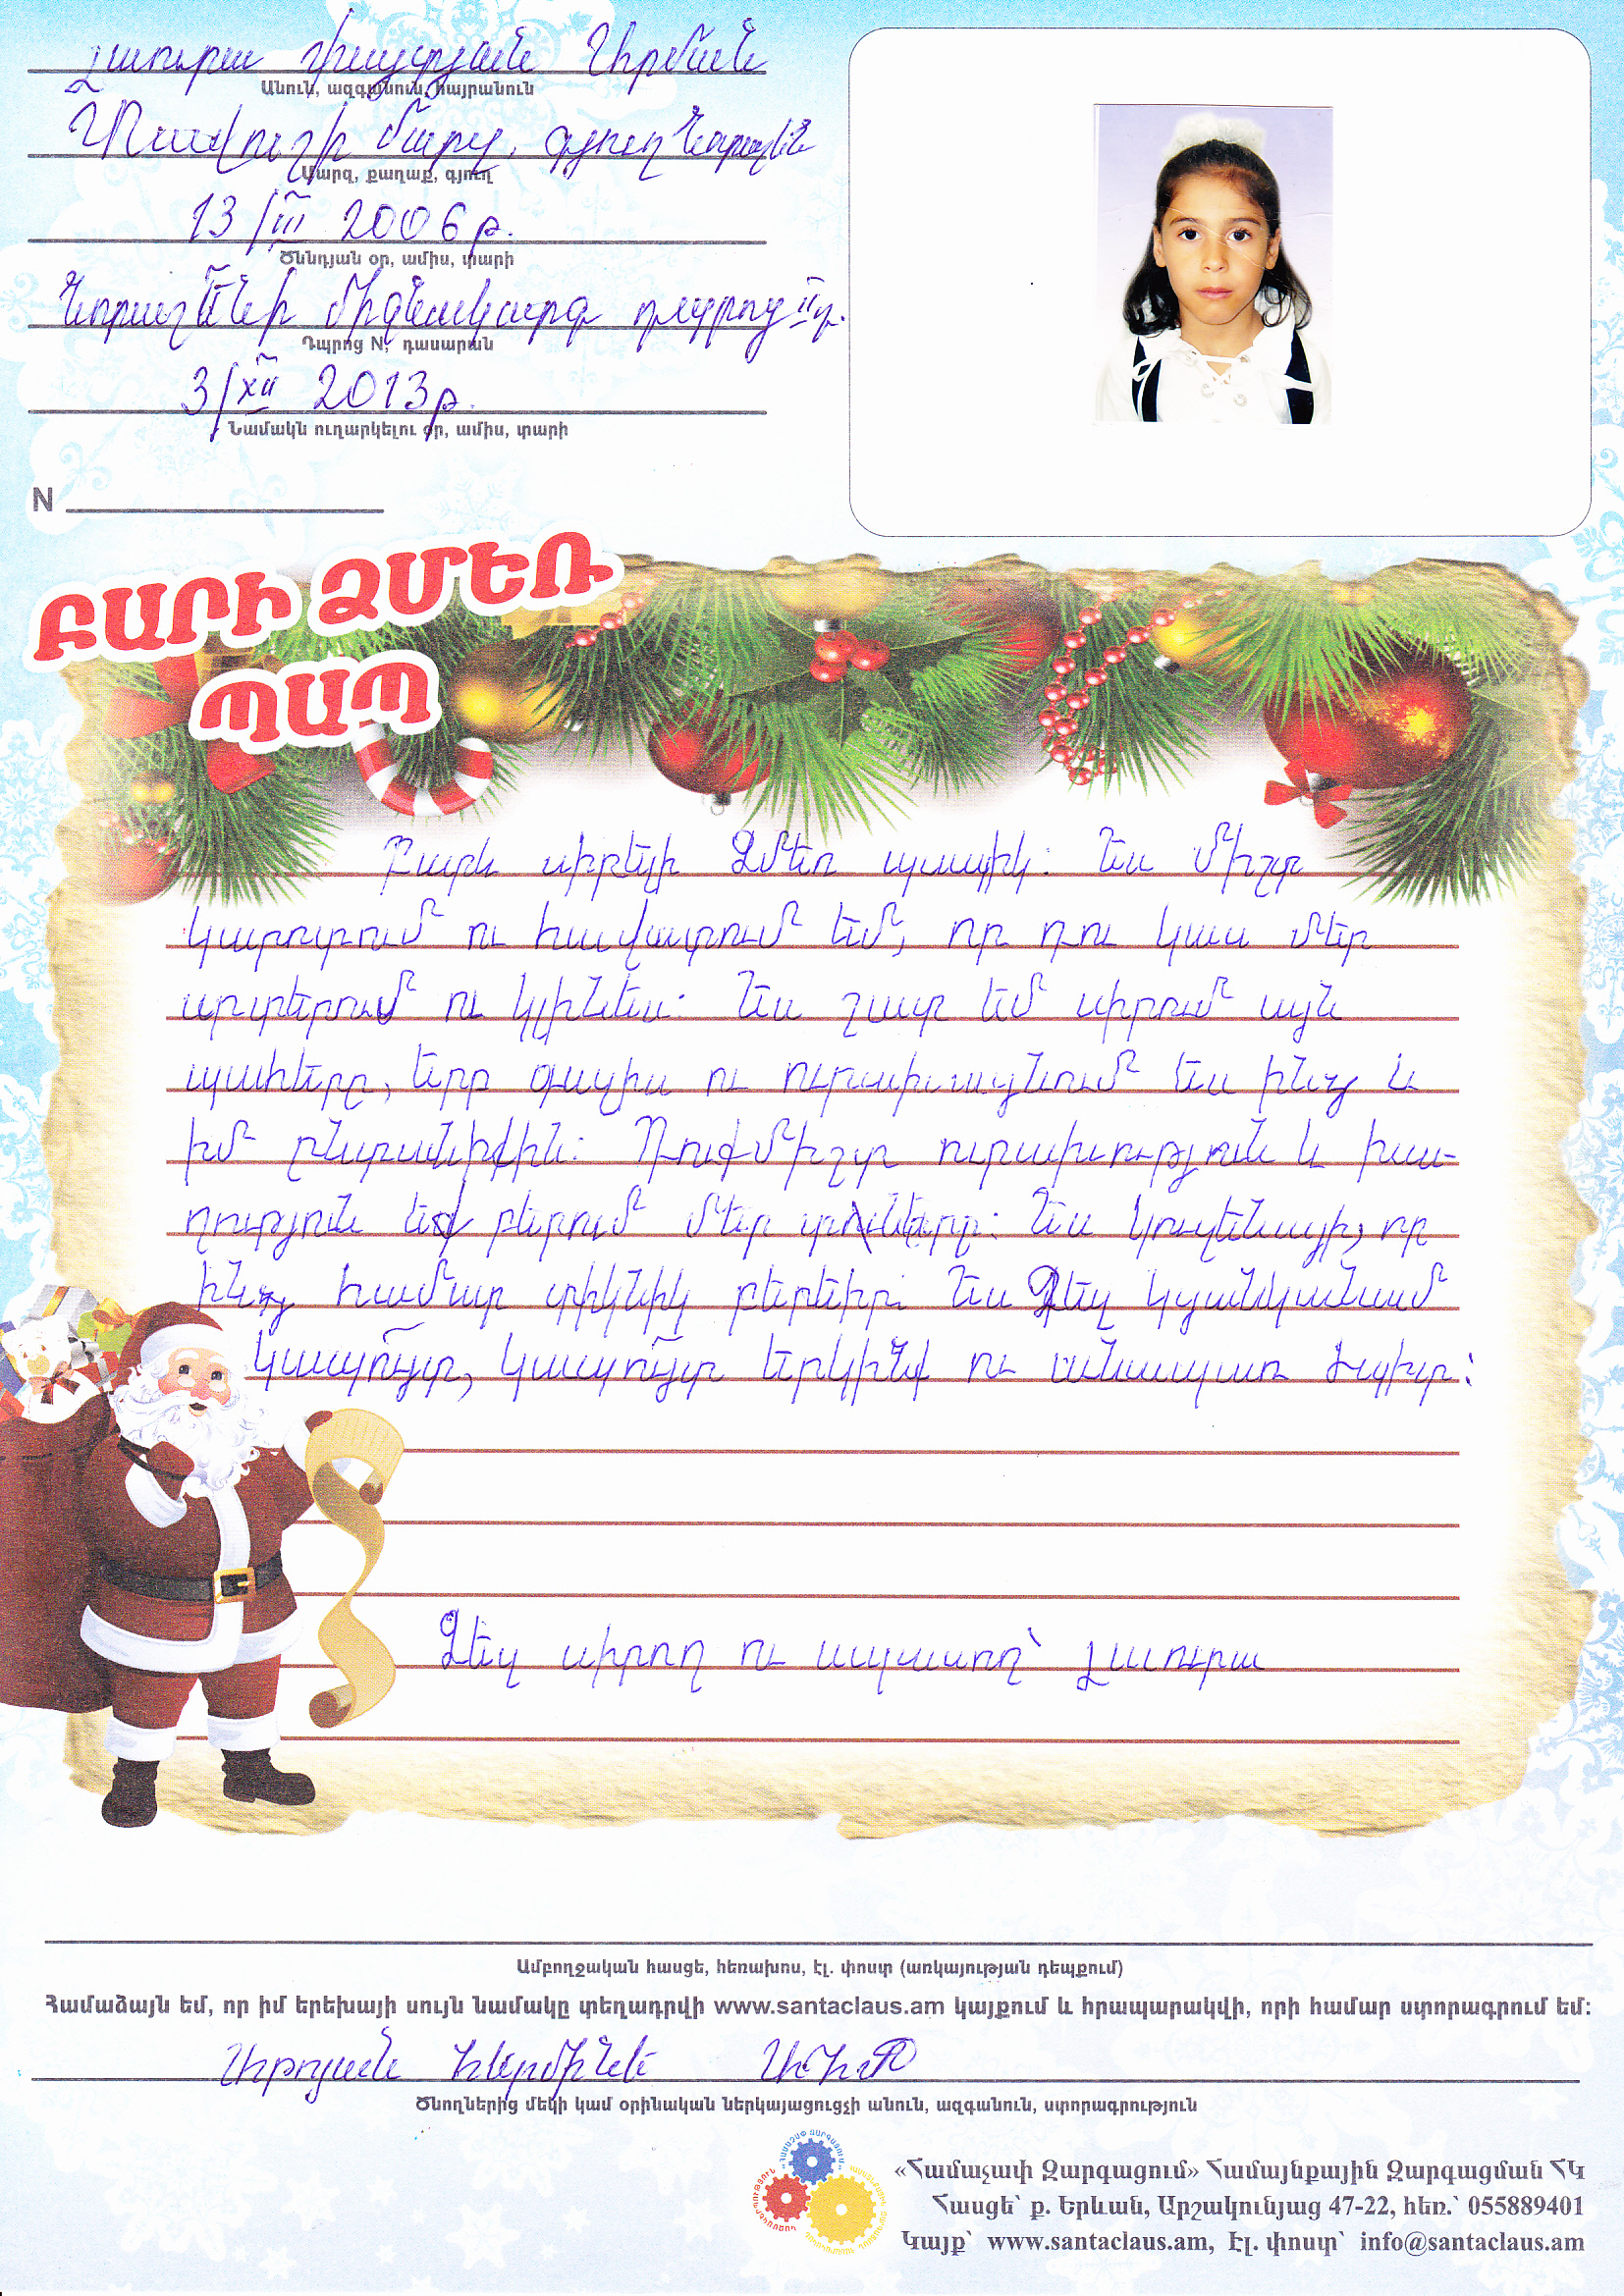 Լաուրա Վիրմանի
Անուն, ազգանուն, հայրանուն
Տավուշի մարզ, գյուղ Նորաշեն
Մարզ, քաղաք, գյուղ
13/III 2006թ.
Ծննդյան օր, ամիս, տարի
Նորաշենի միջնակարգ դպրոց II դ.
Դպրոց N, դասարան
3/XII 2013թ.
Նամակն ուղարկելու օր, ամիս, տարի
N
ԲԱՐԻ ՁՄԵՌ
ՊԱՊ
Բարև սիրելի Ձմեռ պապիկ: Ես միշտ
կարոտում ու հավատում եմ, որ դու կաս մեր
սրտերում ու կլինես: Ես շատ եմ սիրում այն
պահերը, երբ գալիս ու ուրախացնում ես ինձ և
իմ ընտանիքին: Դու միշտ ուրախություն և խա-
ղություն ես բերում մեր տները: Ես կուզենայի, որ
ինձ համար տիկնիկ բերեիր: Ես Ձեզ կցանկանամ
կապույտ, կապույտ երկինք ու անսպառ ժպիտ:
Ձեզ սիրող ու սպասող՝ Լաուրա
Ամբողջական հասցե, հեռախոս, էլ. փոստ (առկայության դեպքում)
Համաձայն եմ, որ իմ երեխայի սույն նամակը տեղադրվի www.santaclaus.am կայքում և հրապարակվի, որի համար ստորագրում եմ:
Հերմինե
Ծնողներից մեկի կամ օրինական ներկայացուցչի անուն, ազգանուն, ստորագրություն
«Համաչափ Զարգացում» Համայնքային Զարգացման ՀԿ
Հասցե՝ ք. Երևան, Արշակունյաց 47-22, հեռ.՝ 055889401
Կայք՝ www.santaclaus.am, Էլ. փոստ՝ info@santaclaus.am